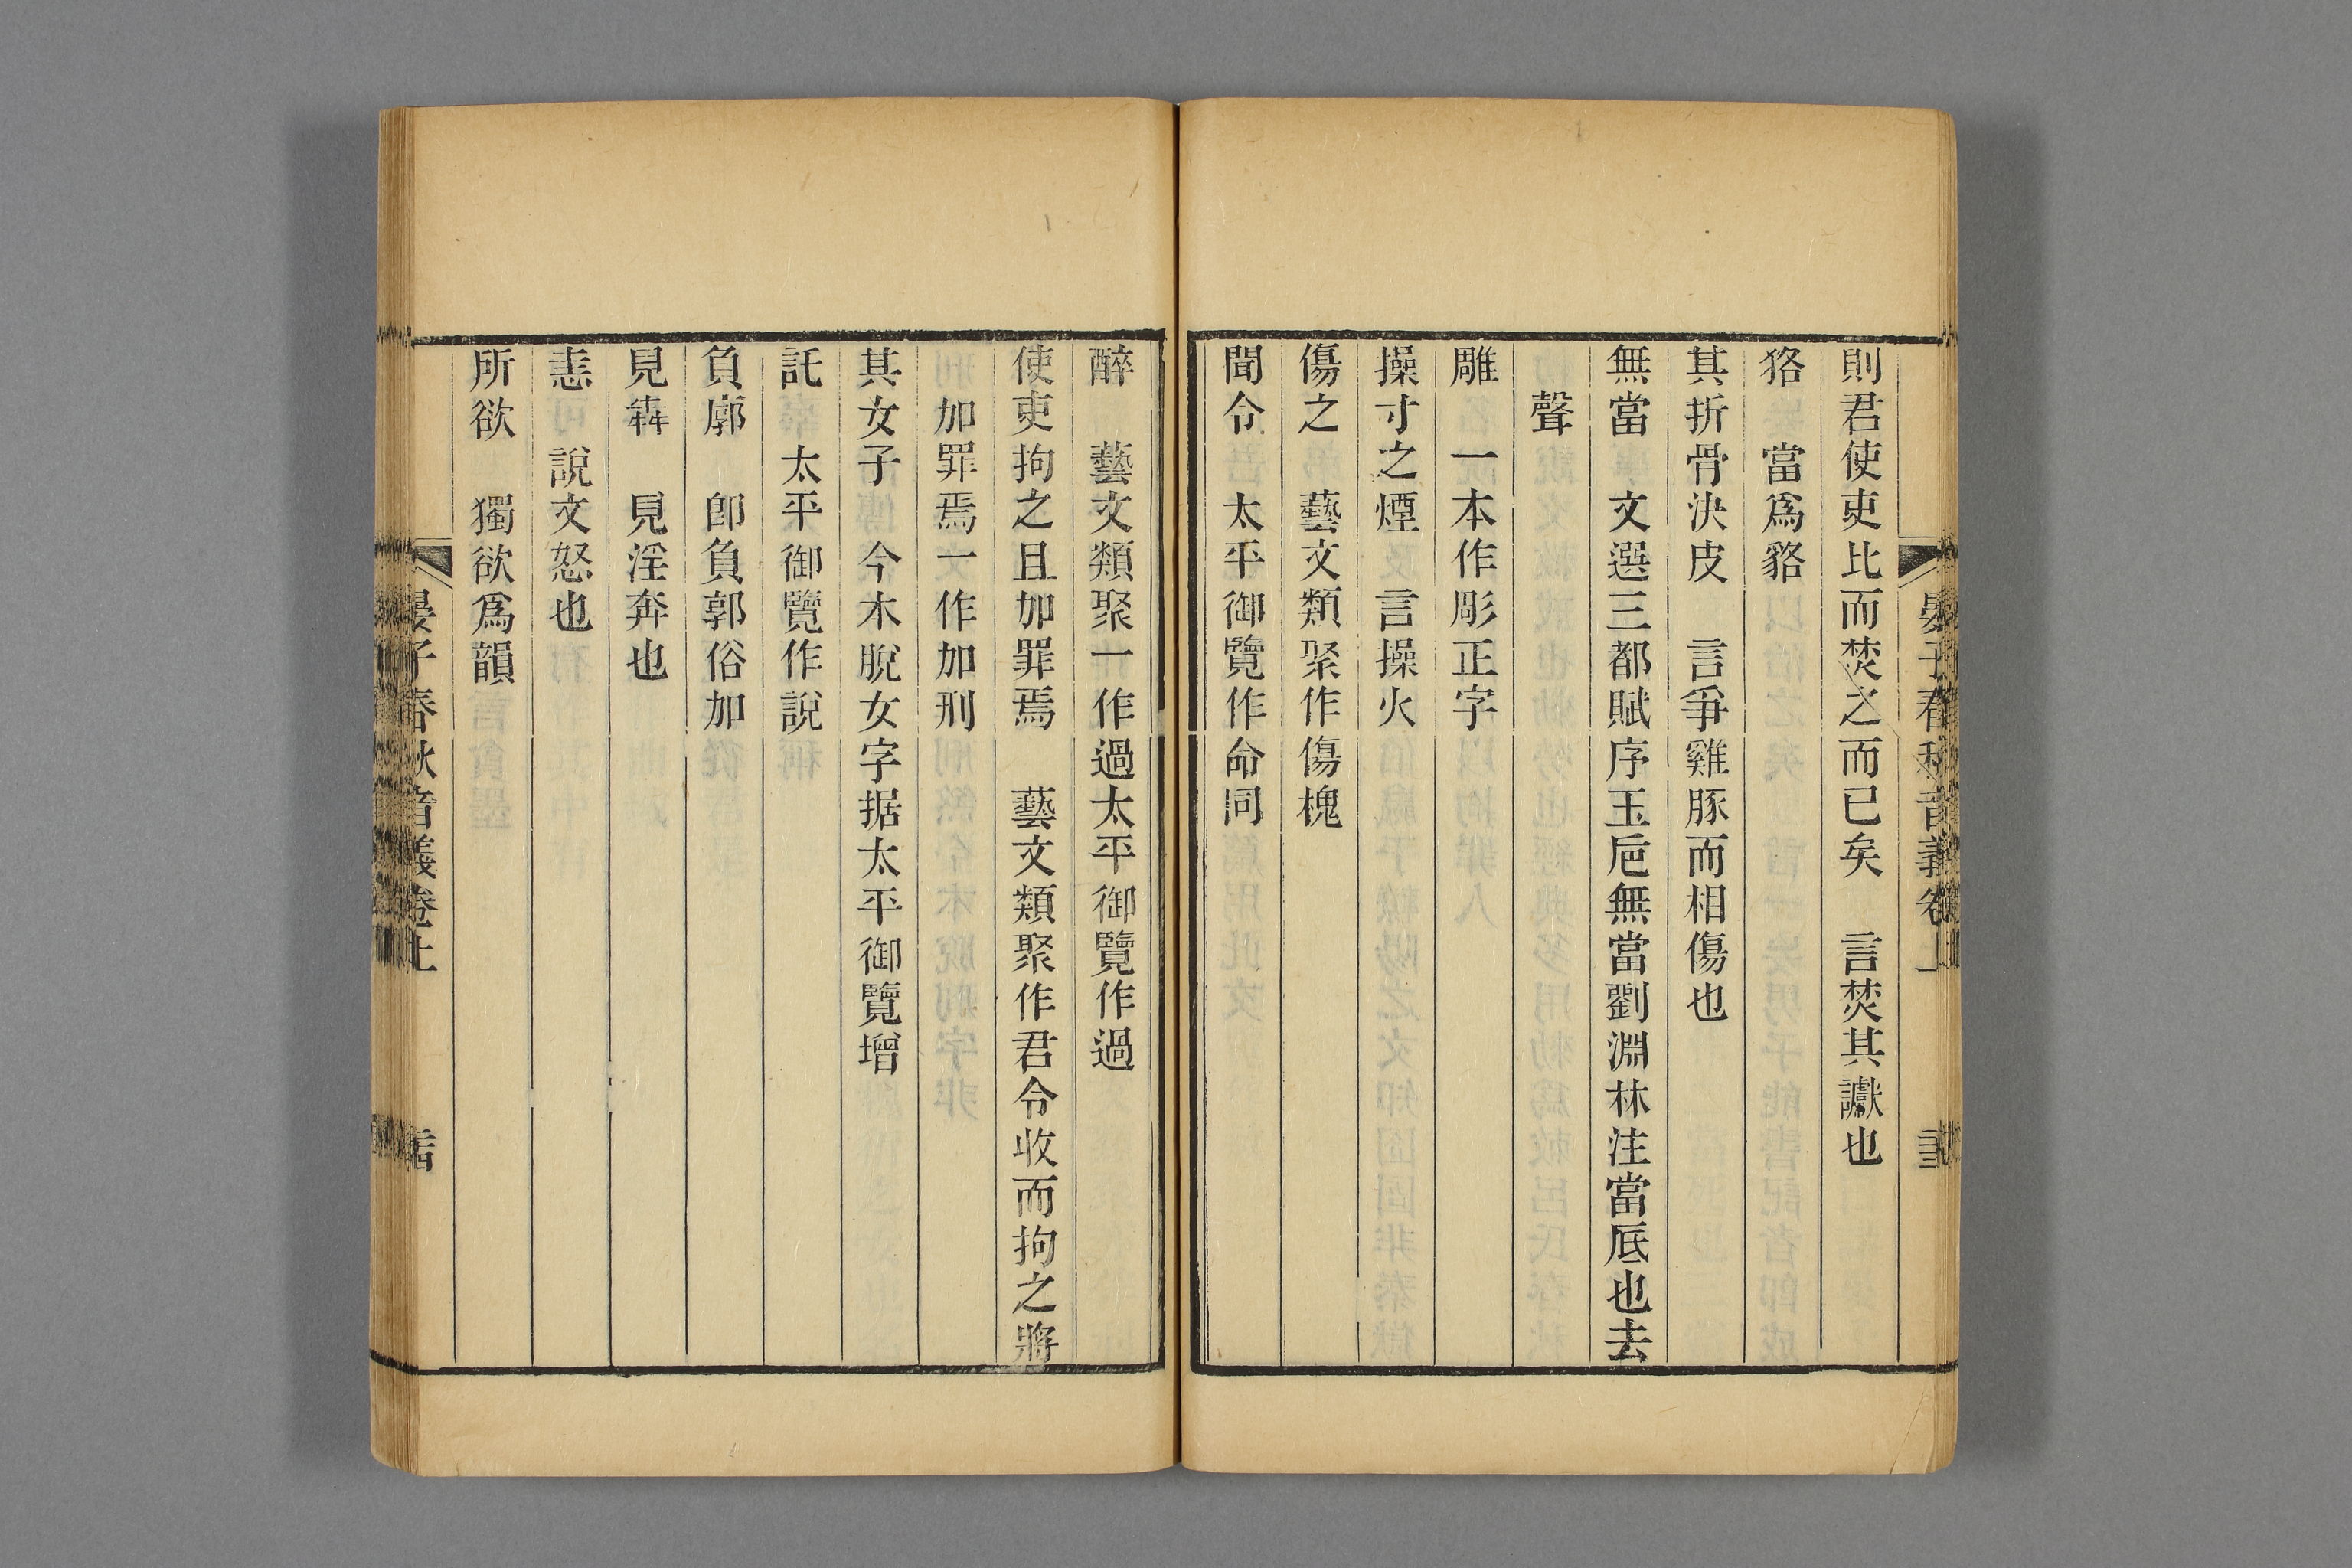 晏子春秋音義卷上
則君使吏比而焚之而已矣　言焚其讞也
狢　當爲貉
其折骨決皮　言爭雞豚而相傷也
無當　文選三都賦序玉巵無當劉淵林注當底也去
聲
雕　一本作彫正字
操寸之煙　言操火
傷之　藝文類聚作傷槐
聞令　太平御覽作命同
醉　藝文類聚一作過太平御覽作過
使吏拘之且加罪焉　藝文類聚作君令收而拘之將
加罪焉一作加刑
其女子　今本脫女字据太平御覽增
託　太平御覽作說
負廓　卽負郭俗加
見犇　見淫奔也
恚　說文怒也
所欲　獨欲爲韻
晏子春秋音義卷上